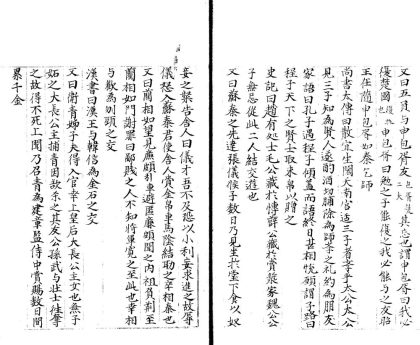 又曰五員与申包胥友其亡也謂申包胥曰我必
復楚國申包胥曰勉之子能復之我必能与之及昭
王在隨申包胥如秦乞師
尚書大傳曰散宜生閎夭南宮适三子者學于太公太公
見三子知為賢人遂酌酒切脯除為師子之礼約為朋友
家語曰孔子遇程子傾蓋而語終日甚相悅顧謂子路曰
程子天下之賢士取束帛以贈之
史記曰趙有処士毛公藏於博薛公藏於賣漿家魏公
子無忌從此二人結交遊也
又曰蘇秦之先達張儀候子數日乃見坐於堂下食以奴
妾之告舍人曰儀才吾不及恐以小利妨求進之故辱
儀怒入蘇秦君使舍人賫金帛車馬陰結助之幸相秦也
又曰藺相如望見廉頗引車避匿廉頗聞之肉袒負荊至
藺相如門謝罪曰鄙賤之人不知將軍寬之至此也卒相
与歡為刎頸之交
漢書曰漢王与韓信為金石之交
又曰衛青姊子夫得入宮幸上皇后大長公主女也無子
妬之大長公主捕青囚欲殺之其友公孫敖与壯士往篡
之故得不死上聞乃召青為建章監侍中賞賜數日間
累千金